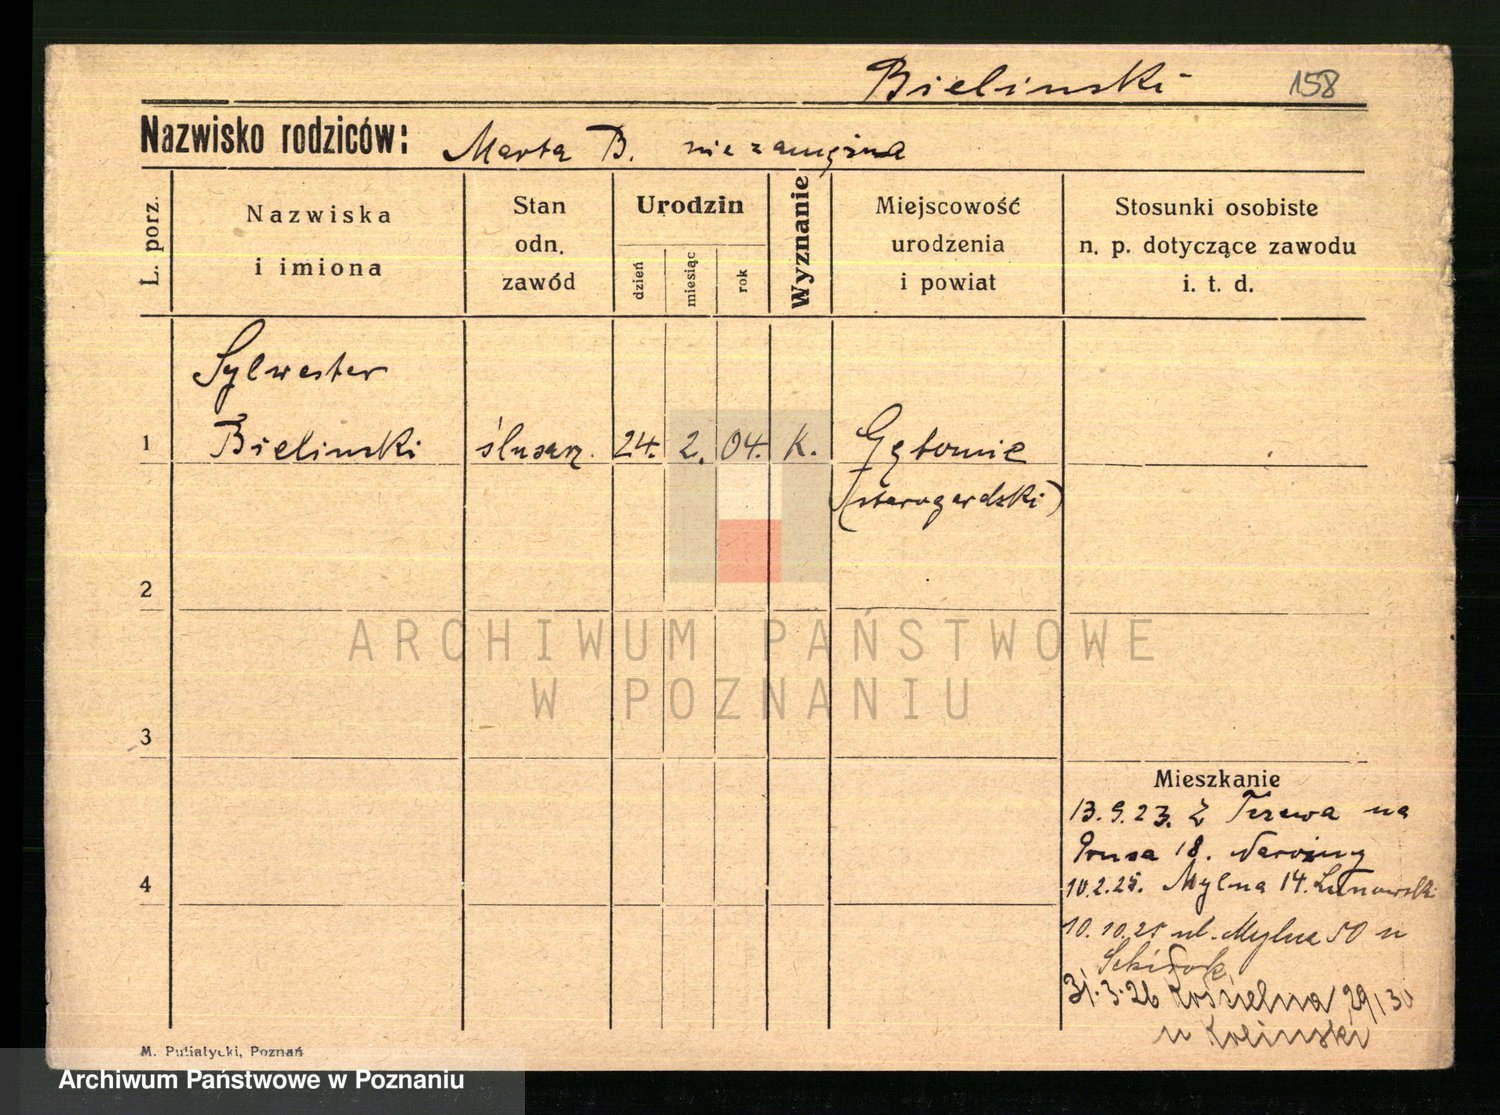 Bielinski 158
Nazwisko rodziców: Marta B. niezamężna
L. porz.
Nazwiska
i imiona
Stan
odn.
zawód
Urodzin
dzień
miesiąc
rok
Wyznanie
Miejscowość
urodzenia
i powiat
Stosunki osobiste
n. p. dotyczące zawodu
i. t. d.
Sylwester
1 Bielinski ślusarz. 24. 2. 04. K.
(starogardzki)
2
ARCHIWUM PAŃSTWOWE
W POZNANIU
3
Mieszkanie
13.9.23. Z Tczewa na
Prusa 18.
4
10.2.25. Mylna 14.
10.10.25 ul. Mylna 50 u
31.3.26 Kościelna 29/30
u Kolinski
M. Putiatycki, Poznań
Archiwum Państwowe w Poznaniu